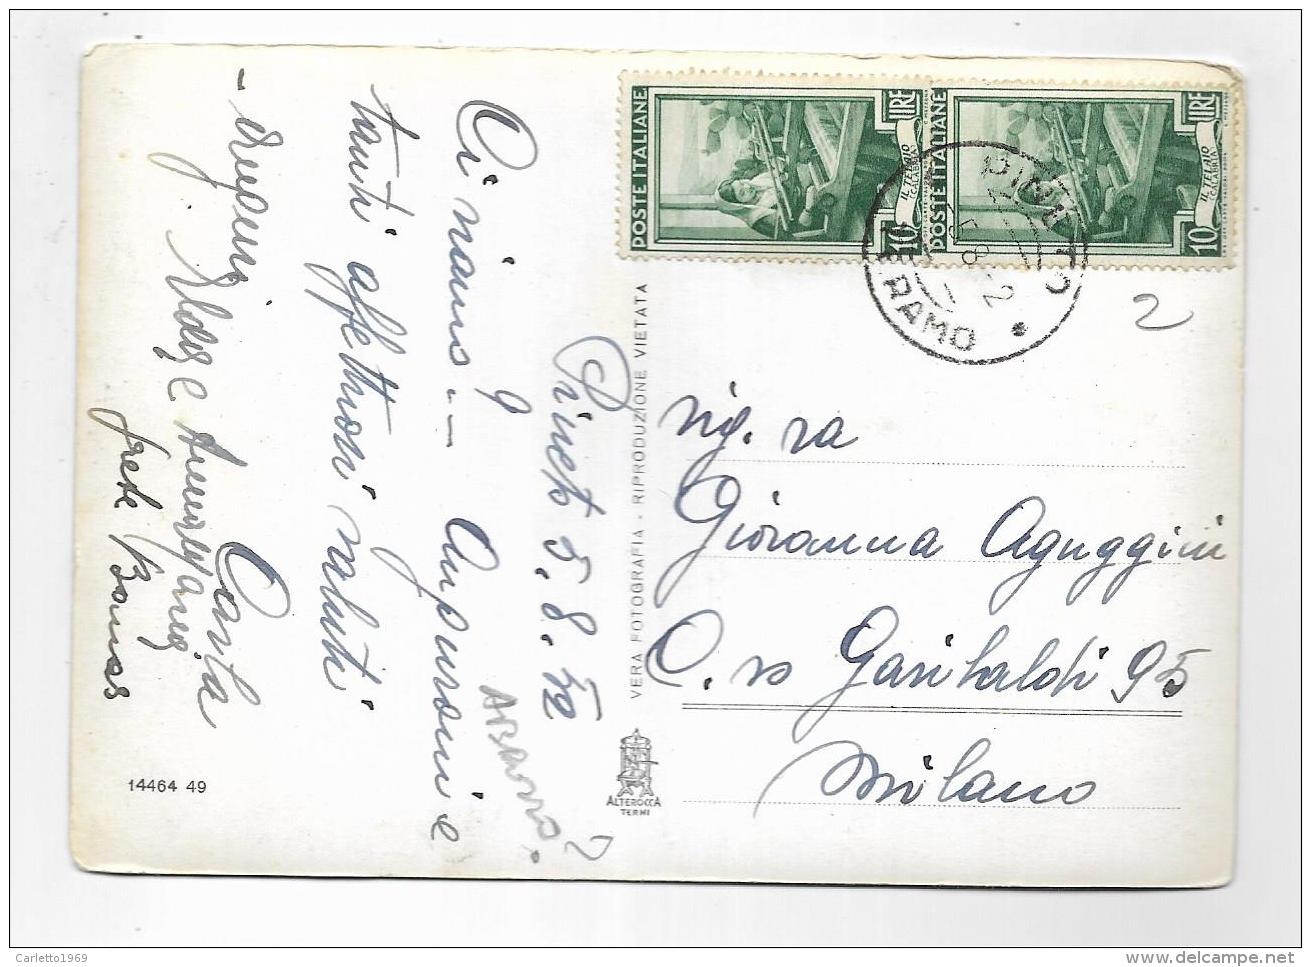 Pineto 5.8.52
Ci siamo. Auguroni e
tanti affettuosi saluti
Carla
ABRUZZO
2
14464 49
VERA FOTOGRAFIA - RIPRODUZIONE VIETATA
ALTEROCCA
TERNI
POSTE ITALIANE
LIRE
10
IL TELAIO
CALABRIA
POSTE ITALIANE
LIRE
10
IL TELAIO
CALABRIA
PINETO
5.8.52
TERAMO
2
Sig.ra
Giovanna Aguggini
C.so Garibaldi 95
Milano
Carletto1969
delcampe.net